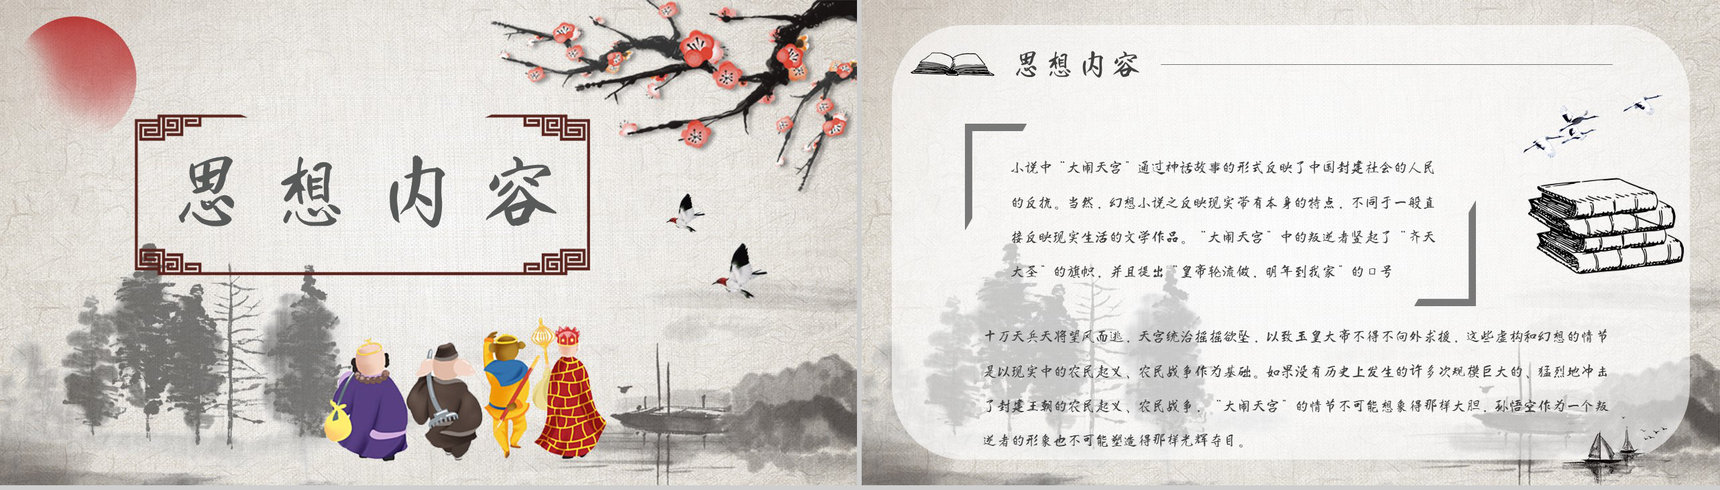 思想内容
思想内容
小说中“大闹天宫”通过神话故事的形式反映了中国封建社会的人民
的反抗。当然，幻想小说之反映现实带有本身的特点，不同于一般直
接反映现实生活的文学作品。“大闹天宫”中的叛逆者竖起了“齐天
大圣”的旗帜，并且提出“皇帝轮流做，明年到我家”的口号
十万天兵天将望风而逃，天宫统治摇摇欲坠，以致玉皇大帝不得不向外求援，这些虚构和幻想的情节
是以现实中的农民起义、农民战争作为基础。如果没有历史上发生的许多次规模巨大的、猛烈地冲击
了封建王朝的农民起义、农民战争，“大闹天宫”的情节不可能想象得那样大胆，孙悟空作为一个叛
逆者的形象也不可能塑造得那样光辉夺目。